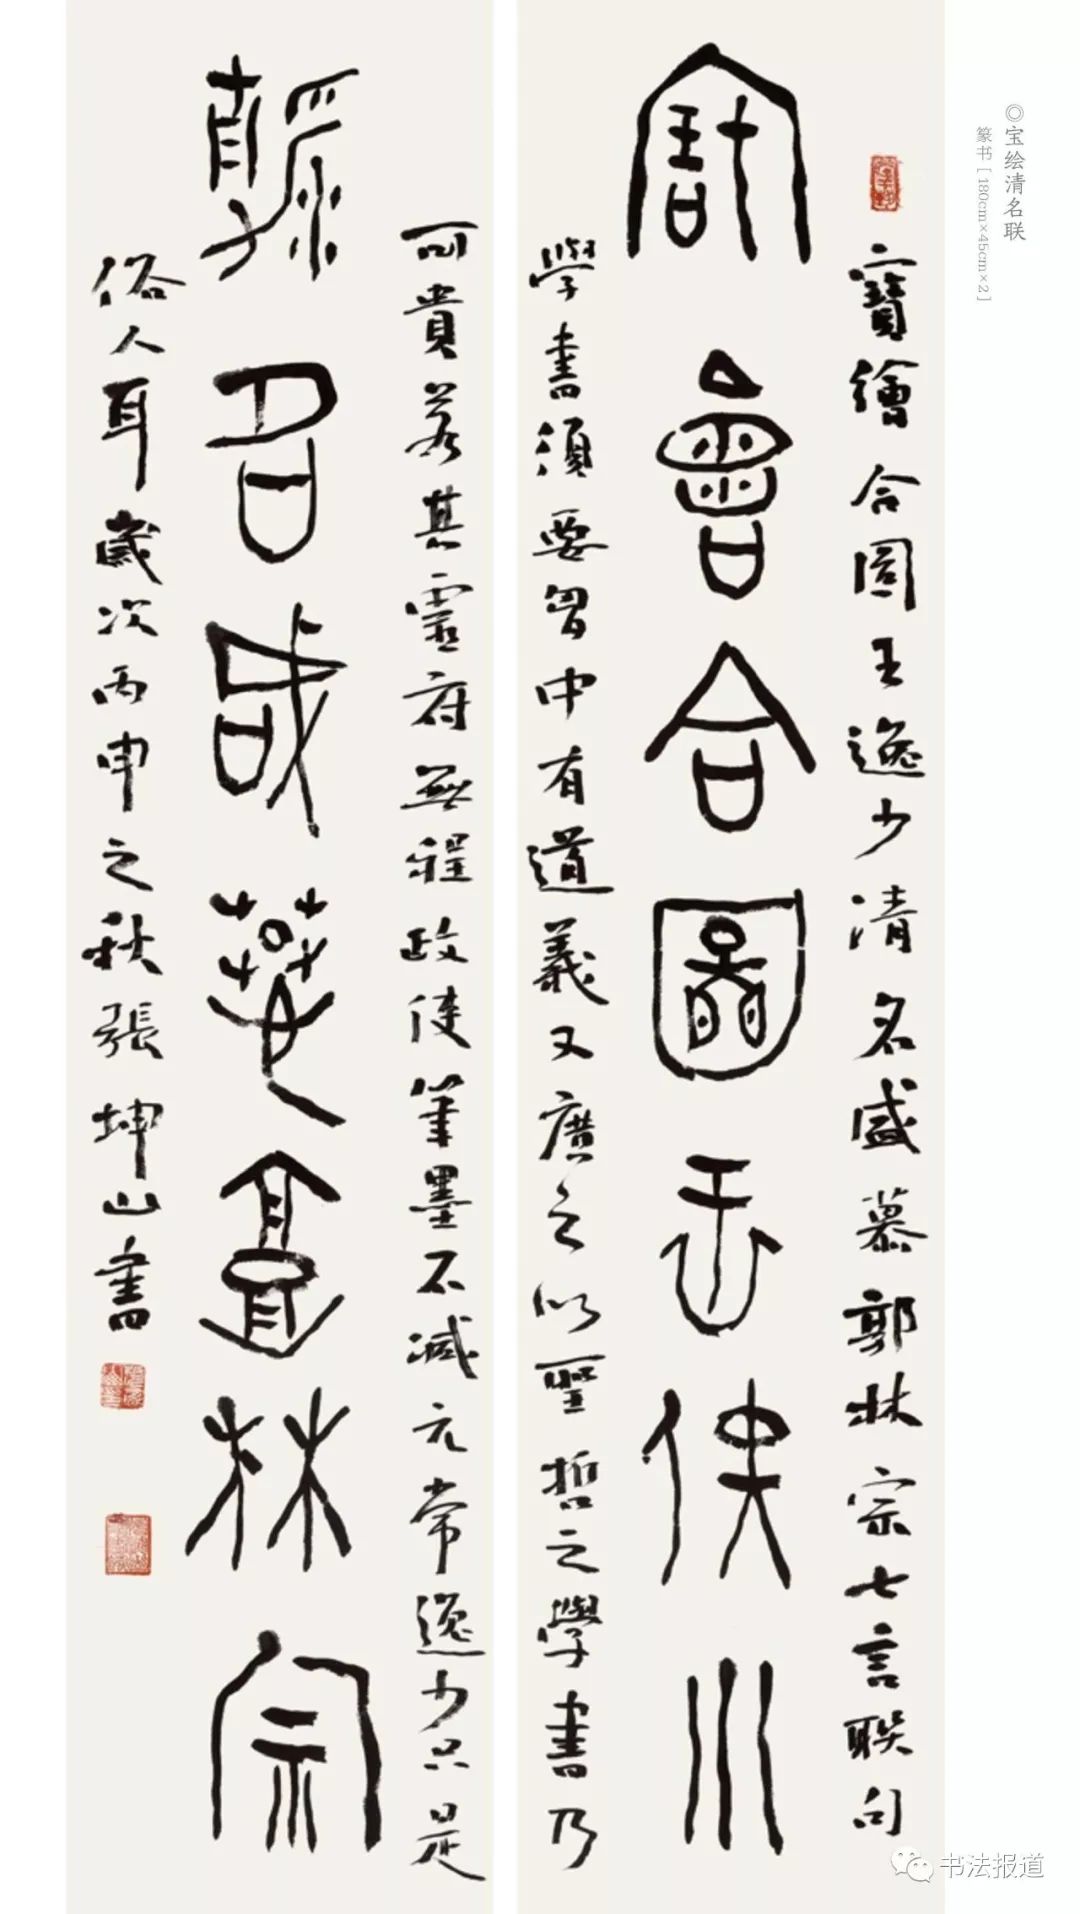 ◎宝绘清名联
篆书［180cm×45cm×2］
寶繪合圖王逸少清名盛慕郭林宗七言聯句
寶會合圖王佚少
學書須要胷中有道義又廣之以聖哲之學書乃
可貴若其靈府無程政使筆墨不減元常逸少只是
召盛慕林宗
俗人耳歲次丙申之秋張坤山書
书法报道